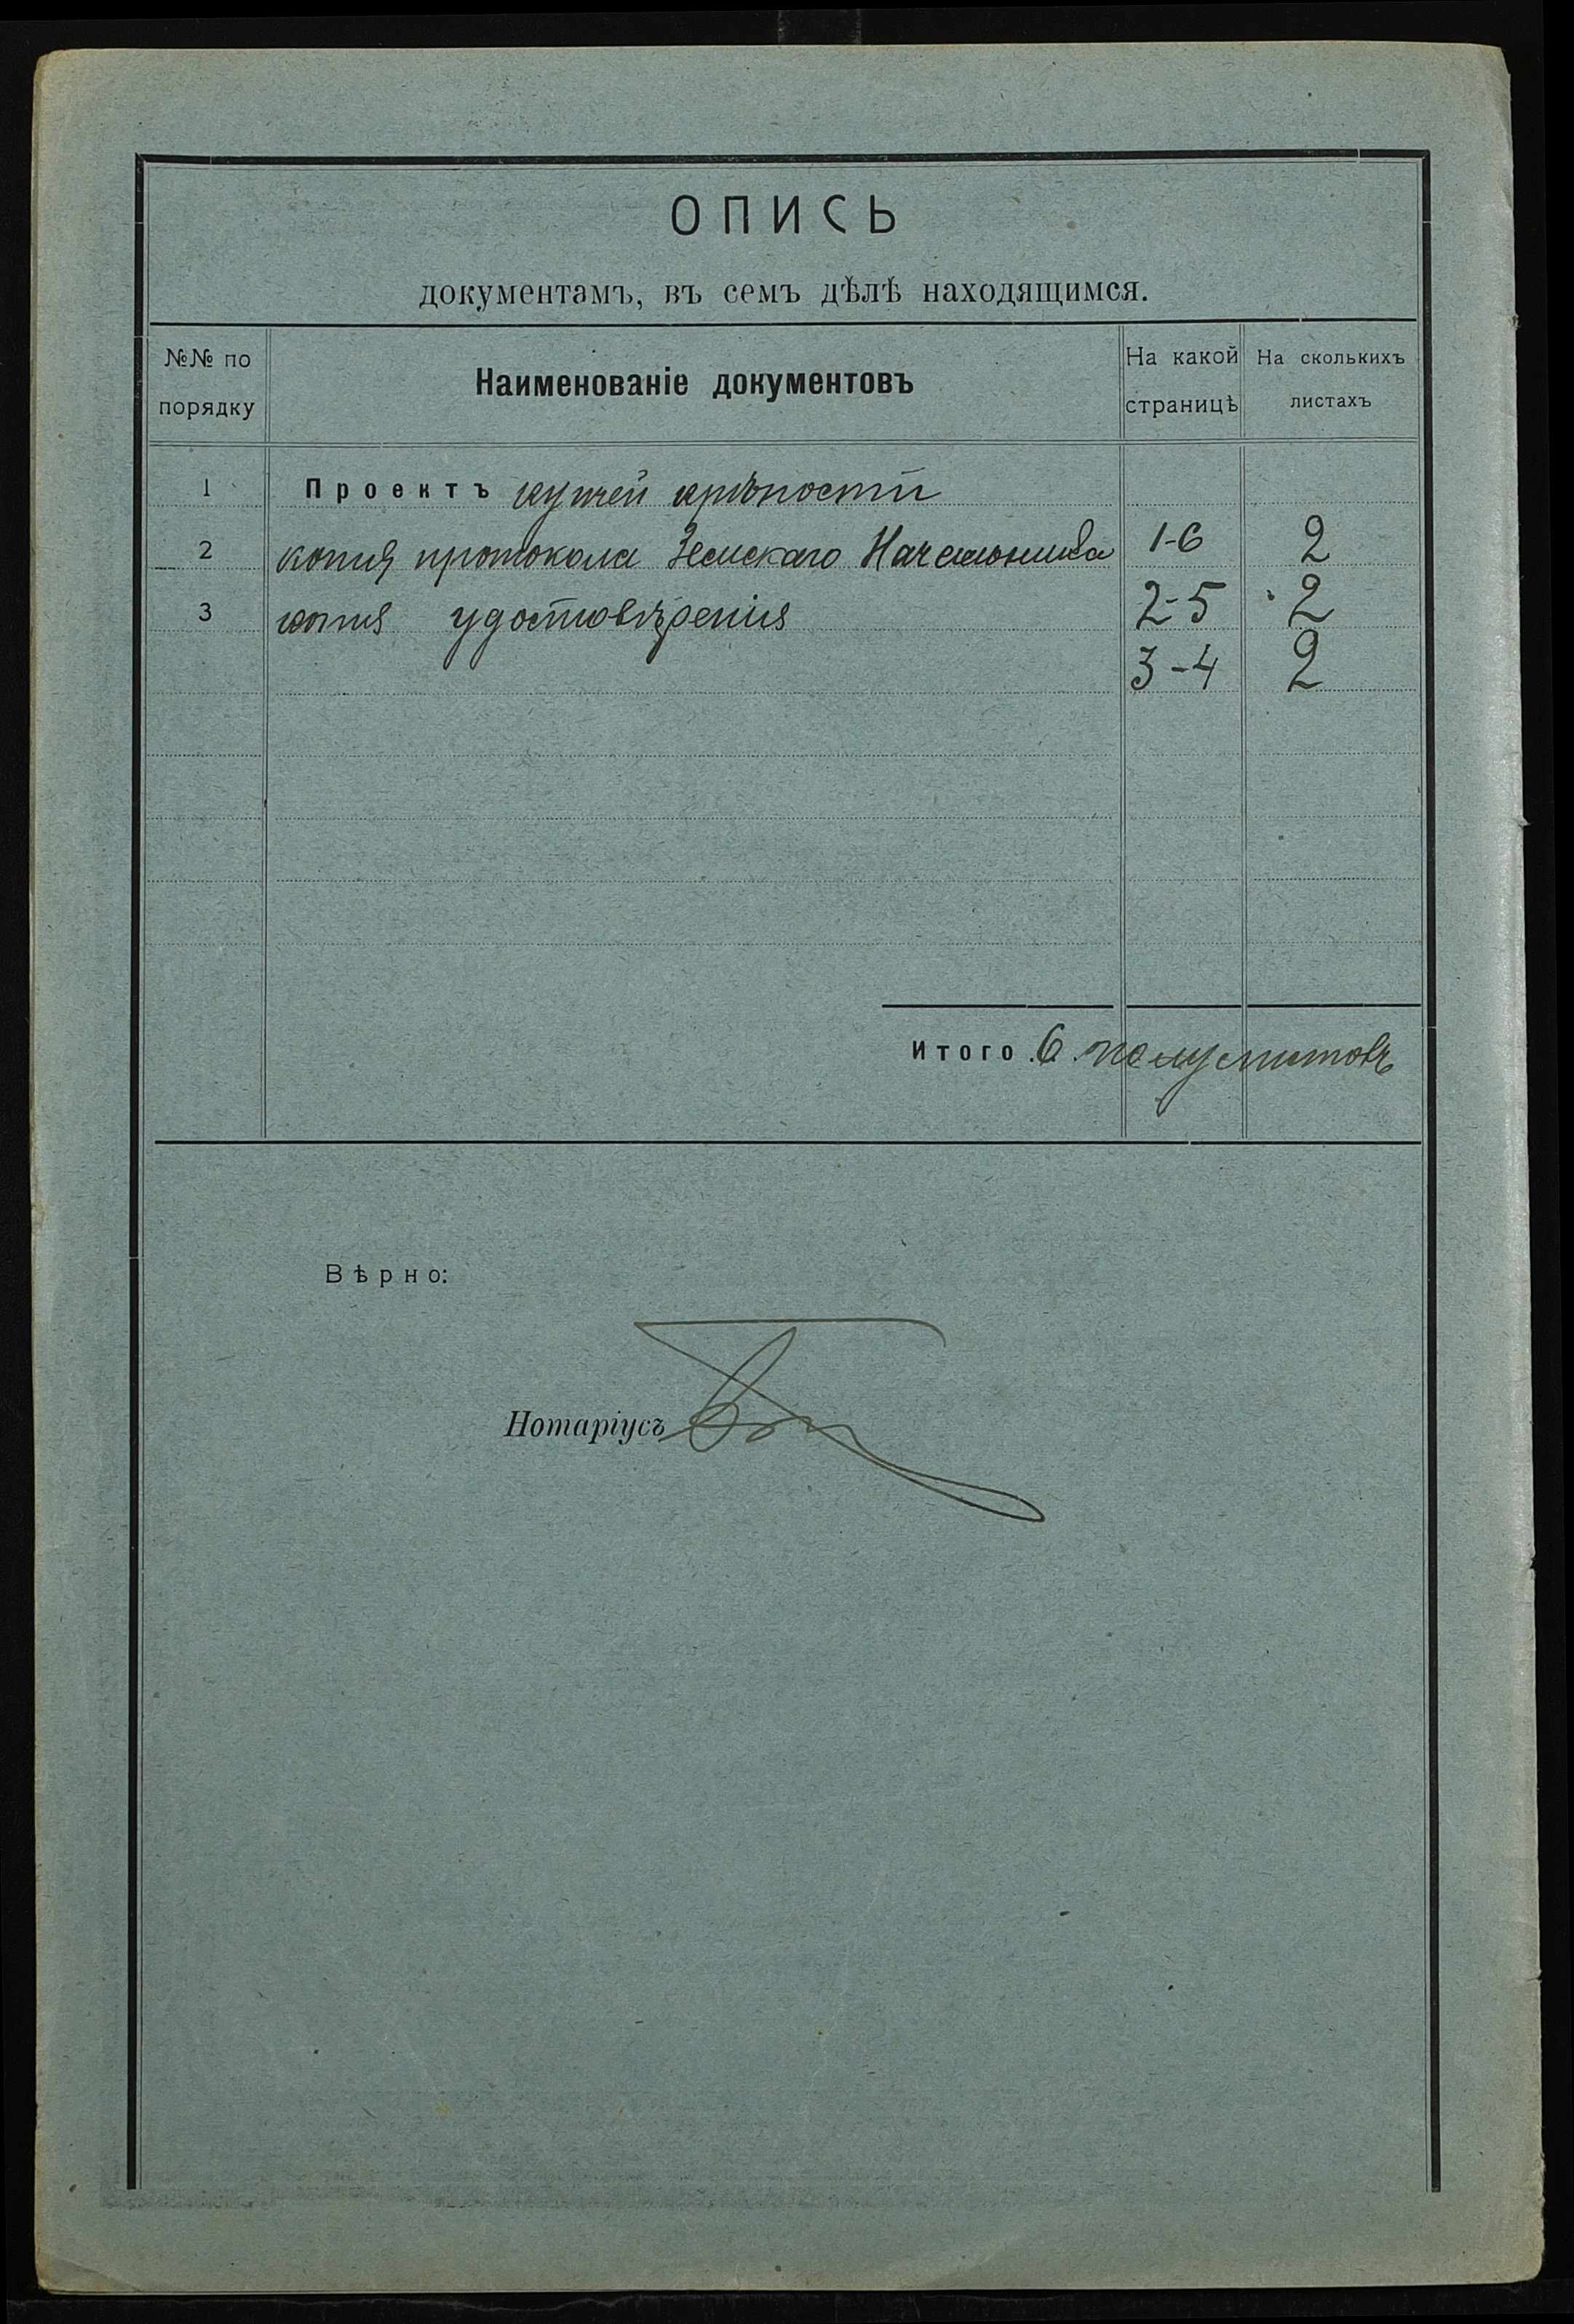 ОПИСЬ
документамъ, въ семъ дѣлѣ находящимся.
№№ по порядку
Наименованіе документовъ
На какой страницѣ
На сколькихъ листахъ
1 Проектъ купчей крѣпости
2 копія протокола Земскаго Начальника 1-6 2
3 копія удостовѣренія 2-5 2
3-4 2
Итого 6 полулистовъ
Вѣрно:
Нотаріусъ